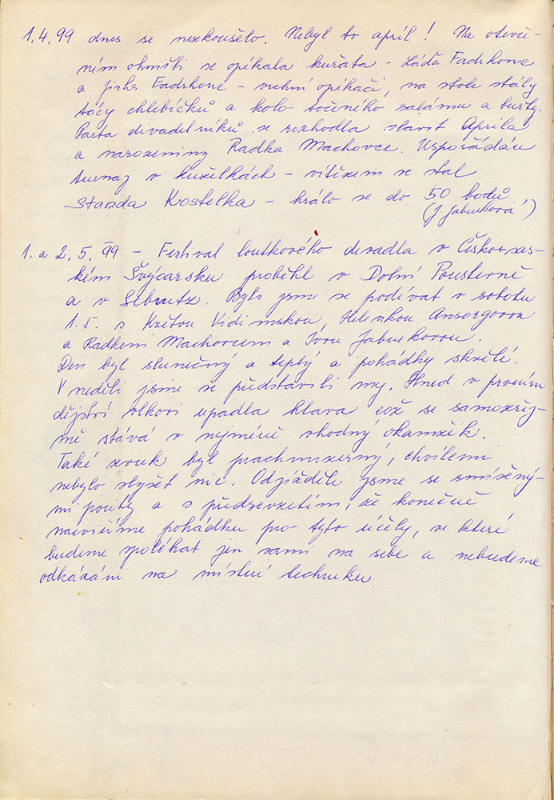 1.4.99 dnes se nezkoušelo. Nebyl to apríl! Na otevře-
ném ohništi se opékala kuřata - Láďa Fadrhonc
a Jirka Fadrhonc - vrchní opékači, na stole stály
tácy chlebíčků a kolo točeného salámu a buřty.
Parta divadelníků se rozhodla slavit Apríla
a narozeniny Radka Machovce. Uspořádán
turnaj v kuželkách - vítězem se stal
Standa Kostelka - hrálo se do 50 bodů
(J. Jabůrková)
1. a 2. 5. 99 - Festival loutkového divadla v Českosas-
kém Švýcarsku proběhl v Dolní Poustevně
a v Sebnitz. Byli jsme se podívat v sobotu
1.5. s Květou Vidimskou, Helenkou Ansorgovou
a Radkem Machovcem a Ivou Jabůrkovou.
Den byl slunečný a teplý a pohádky skvělé.
V neděli jsme se představili my. Hned v prvním
dějství vlkovi upadla hlava což se samozřej-
mě stává v nejméně vhodný okamžik.
Také zvuk byl prachmizerný, chvílemi
nebylo slyšet nic. Odjížděli jsme se smíšený-
mi pocity a s předsevzetím, že konečně
nacvičíme pohádku pro tyto účely, ve které
budeme spoléhat jen sami na sebe a nebudeme
odkázáni na místní techniku.